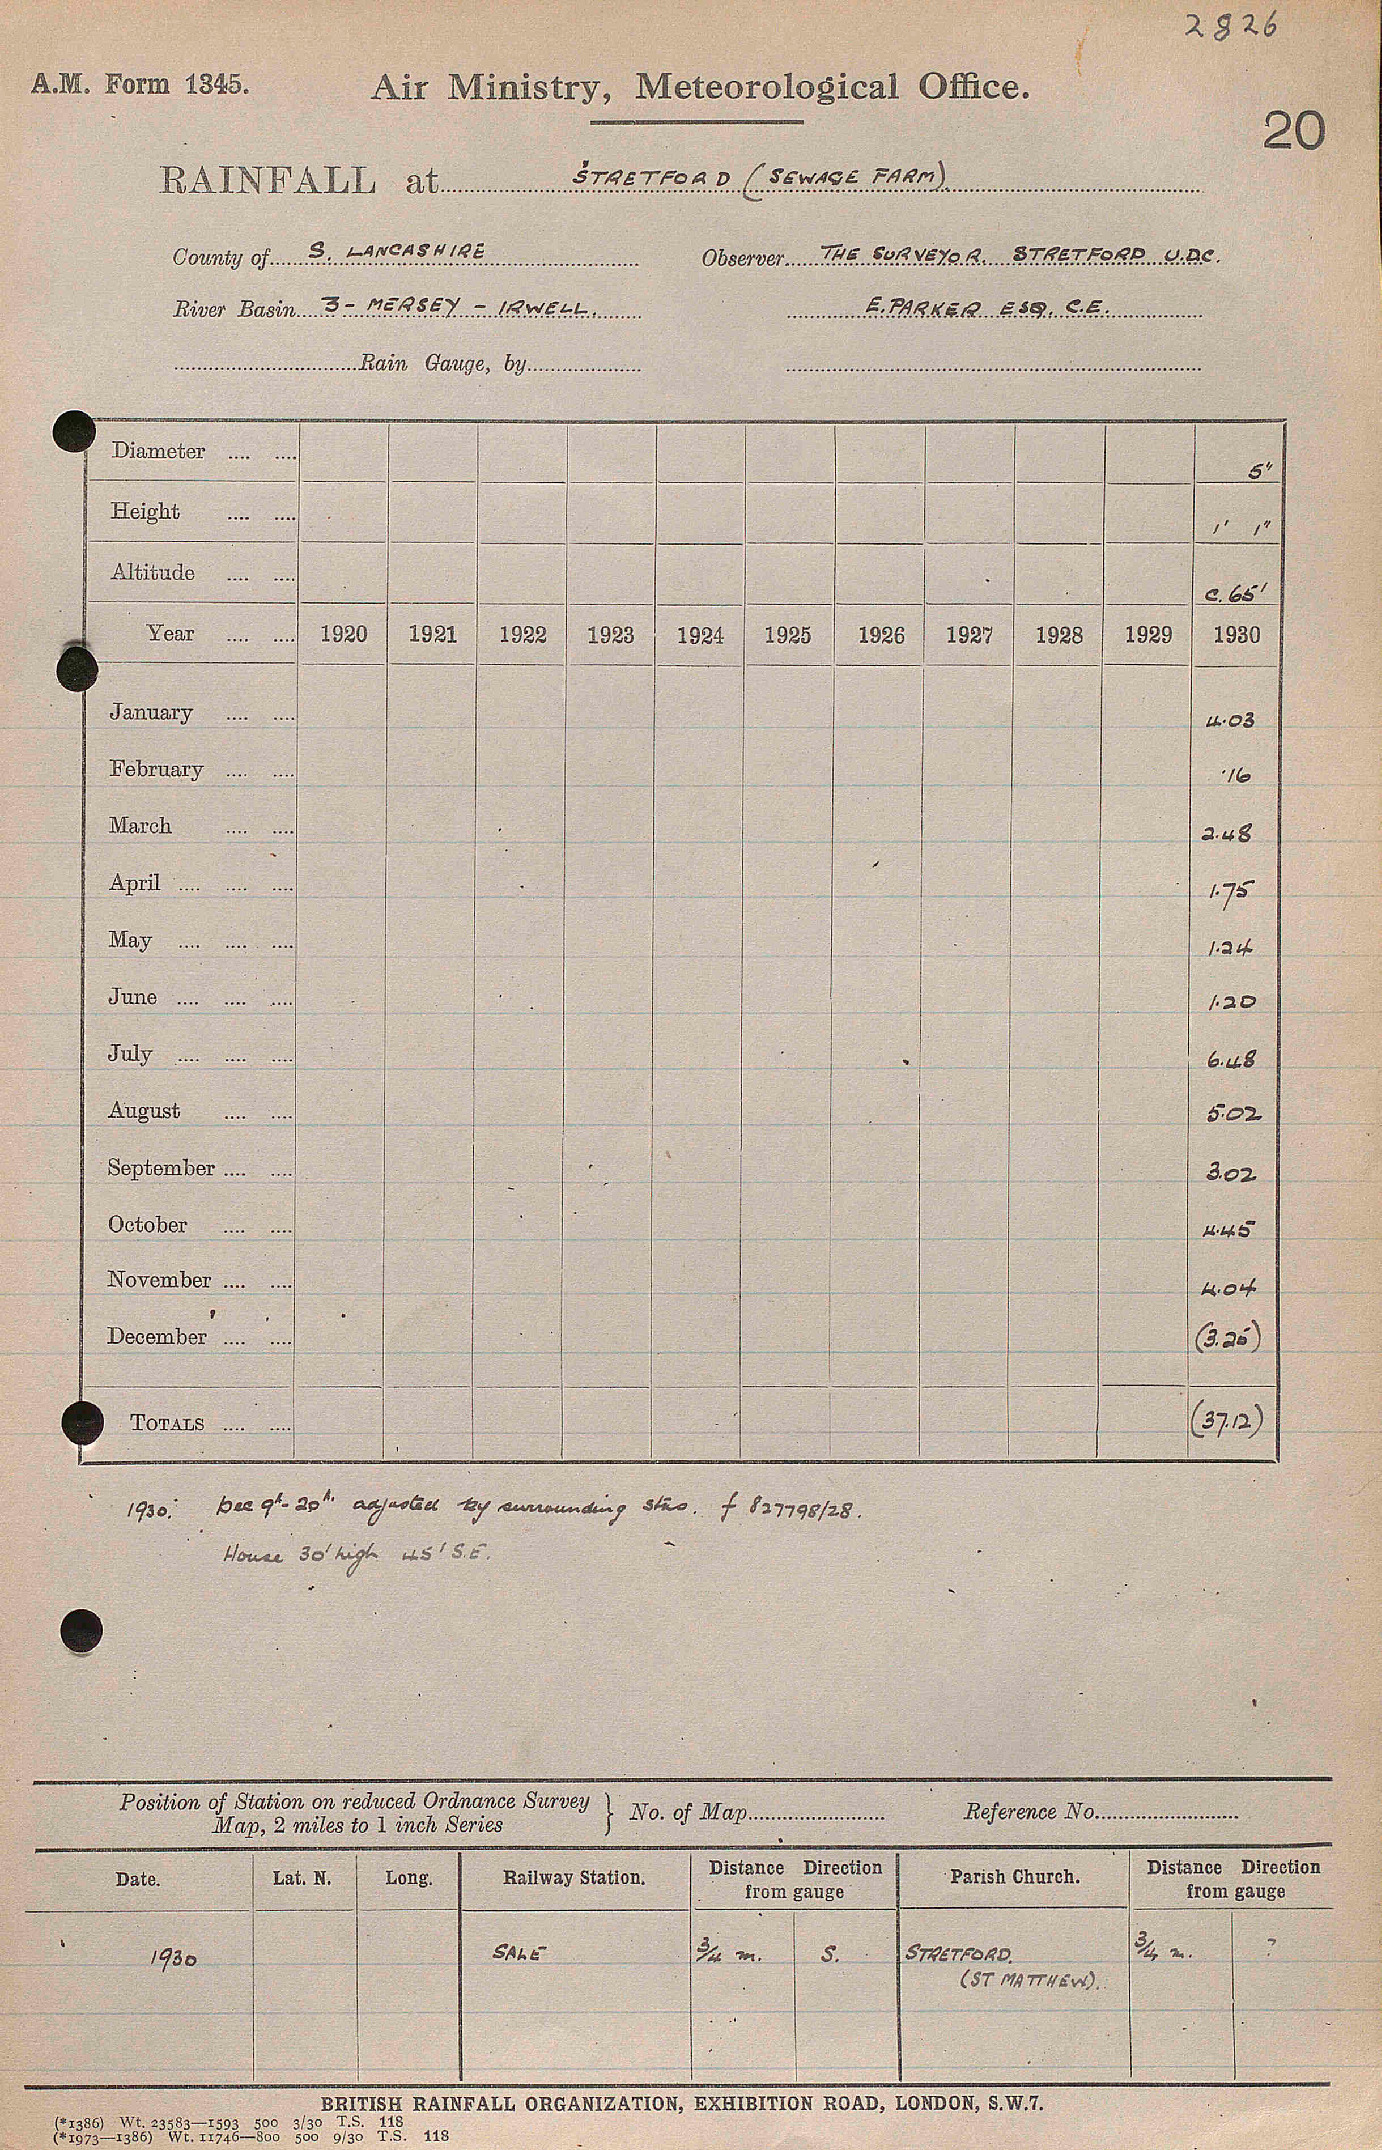 2826
A.M. Form 1345. Air Ministry, Meteorological Office.
20
RAINFALL at STRETFORD (SEWAGE FARM)
County of S. LANCASHIRE Observer THE SURVEYOR. STRETFORD U.D.C.
River Basin 3 - MERSEY - IRWELL. E. PARKER ESQ. C.E.
Rain Gauge, by
Diameter .... .... 5"
Height .... .... 1' 1"
Altitude .... .... c. 65'
Year .... .... 1920 1921 1922 1923 1924 1925 1926 1927 1928 1929 1930
January .... .... 4.03
February .... .... .16
March .... .... 2.48
April .... .... .... 1.75
May .... .... .... 1.24
June .... .... .... 1.20
July .... .... .... 6.48
August .... .... 5.02
September .... .... 3.02
October .... .... 4.45
November .... .... 4.04
December .... .... (3.25)
TOTALS .... .... (37.12)
1930: Dec 9th - 20th. adjusted by surrounding stns. f 827798/28.
House 30' high 45' S.E.
Position of Station on reduced Ordnance Survey
Map, 2 miles to 1 inch Series } No. of Map Reference No.
Date. Lat. N. Long. Railway Station. Distance Direction from gauge Parish Church. Distance Direction from gauge
1930 SALE 3/4 m. S. STRETFORD. 3/4 m. ?
(ST MATTHEW).
BRITISH RAINFALL ORGANIZATION, EXHIBITION ROAD, LONDON, S.W.7.
(*1386) Wt. 23583—1593 500 3/30 T.S. 118
(*1973—1386) Wt. 11746—800 500 9/30 T.S. 118